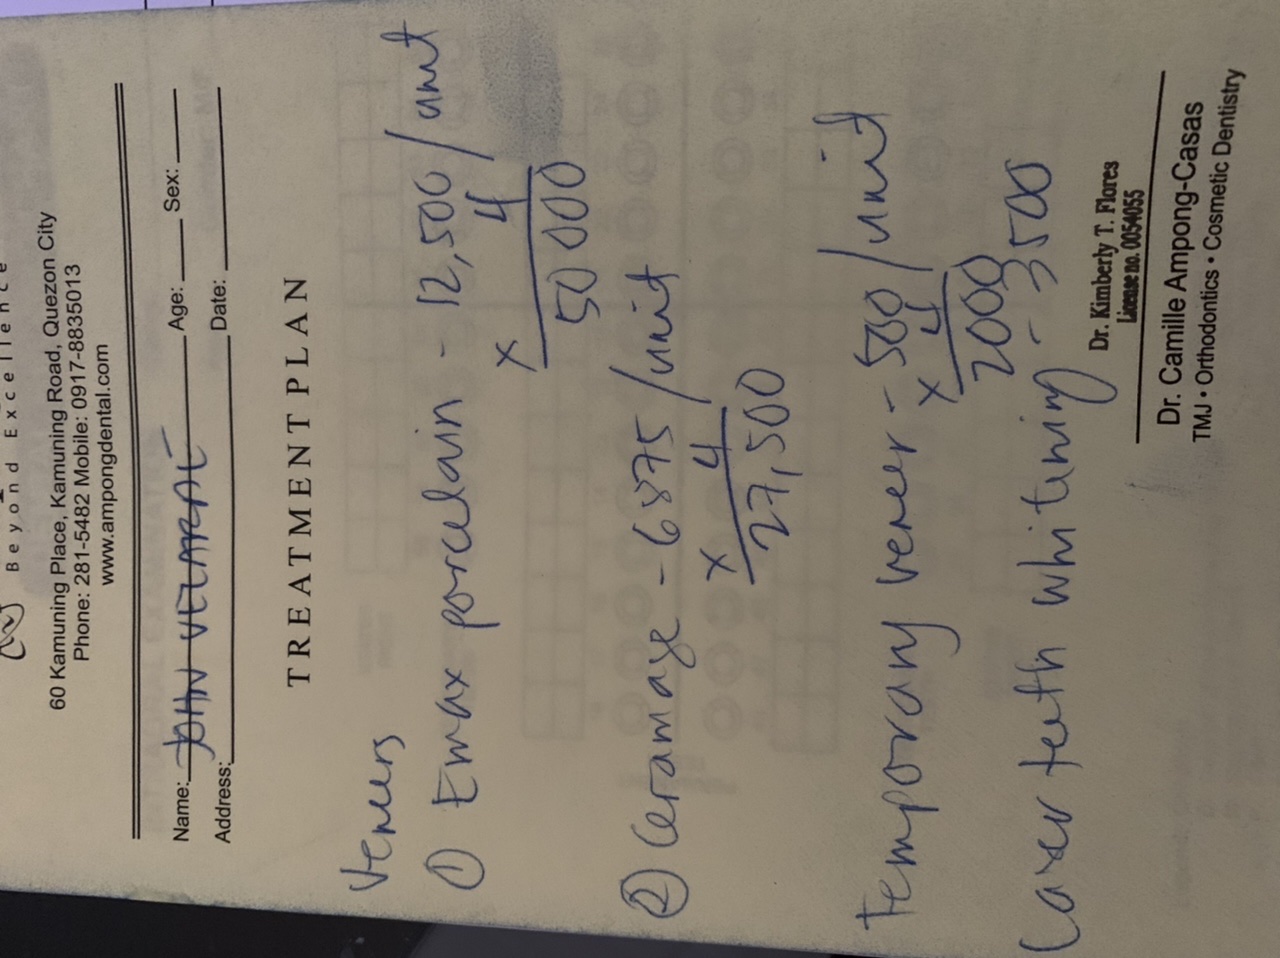 Beyond Excellence
60 Kamuning Place, Kamuning Road, Quezon City
Phone: 281-5482 Mobile: 0917-8835013
www.ampongdental.com
Name: JOHN Age: Sex:
Address: Date:
TREATMENT PLAN
Veneers
① Emax porcelain - 12,500/unit
x 4
50 000
② Ceramage - 6875/unit
x 4
27,500
Temporary veneer - 500/unit
x 4
2000
Laser teeth whitening - 3500
Dr. Kimberly T. Flores
License no. 0054055
Dr. Camille Ampong-Casas
TMJ • Orthodontics • Cosmetic Dentistry